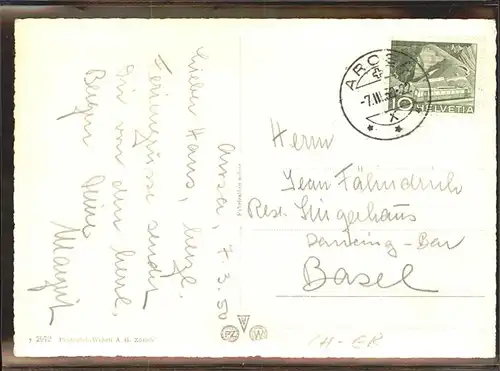 Arosa, 7.3.50
Lieber Hans, herzl.
Feriengrüsse sendet
Dir von den
Bergen Deine
Margrit
AROSA
-7.III.50-22
X
10
HELVETIA
Herrn
Jean Fähndrich
Rest. Singerhaus
Dancing-Bar
Basel
CH-ER
PZ
W
A. G. Zürich